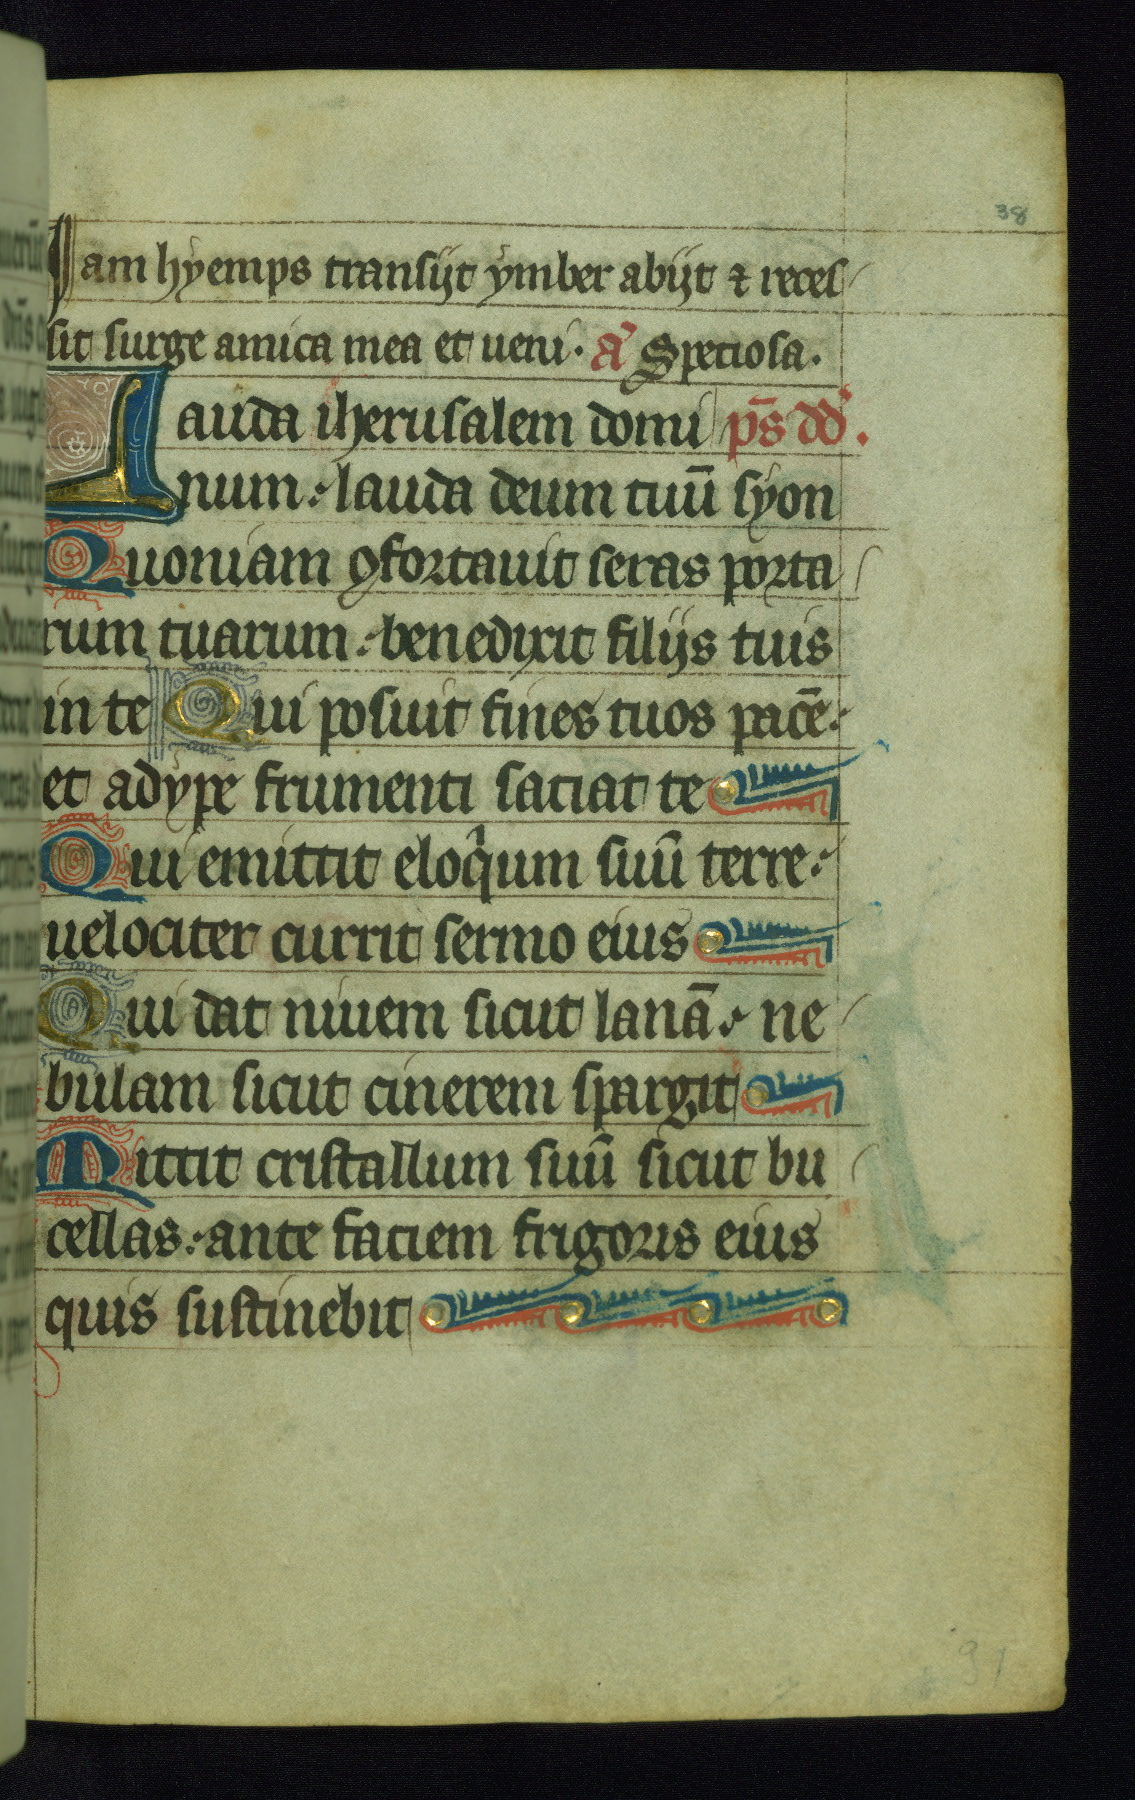 38
Jam hyemps transijt ymber abijt ⁊ reces
sit surge amica mea et ueni. a᷑ Speciosa.
Lauda iherusalem domi p̄s dd᷑.
num: lauda deum tuū syon
Quoniam ꝯfortauit seras porta
rum tuarum: benedixit filijs tuis
in te Qui posuit fines tuos pacē:
et adype frumenti saciat te
Qui emittit eloqͥum suū terre:
uelociter currit sermo eius
Qui dat niuem sicut lanā: ne
bulam sicut cinerem spargit
Mittit cristallum suū sicut bu
cellas: ante faciem frigoris eius
quis sustinebit
91